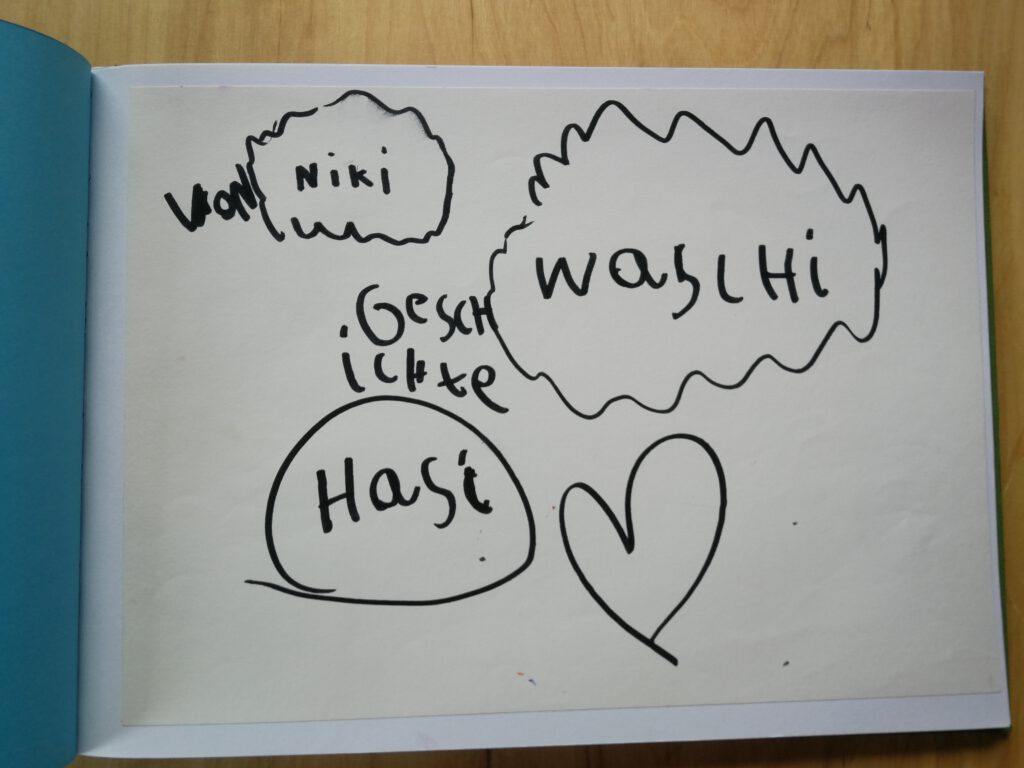 von Niki
WaSCHi
.GeSCH
iCHte
HaSi